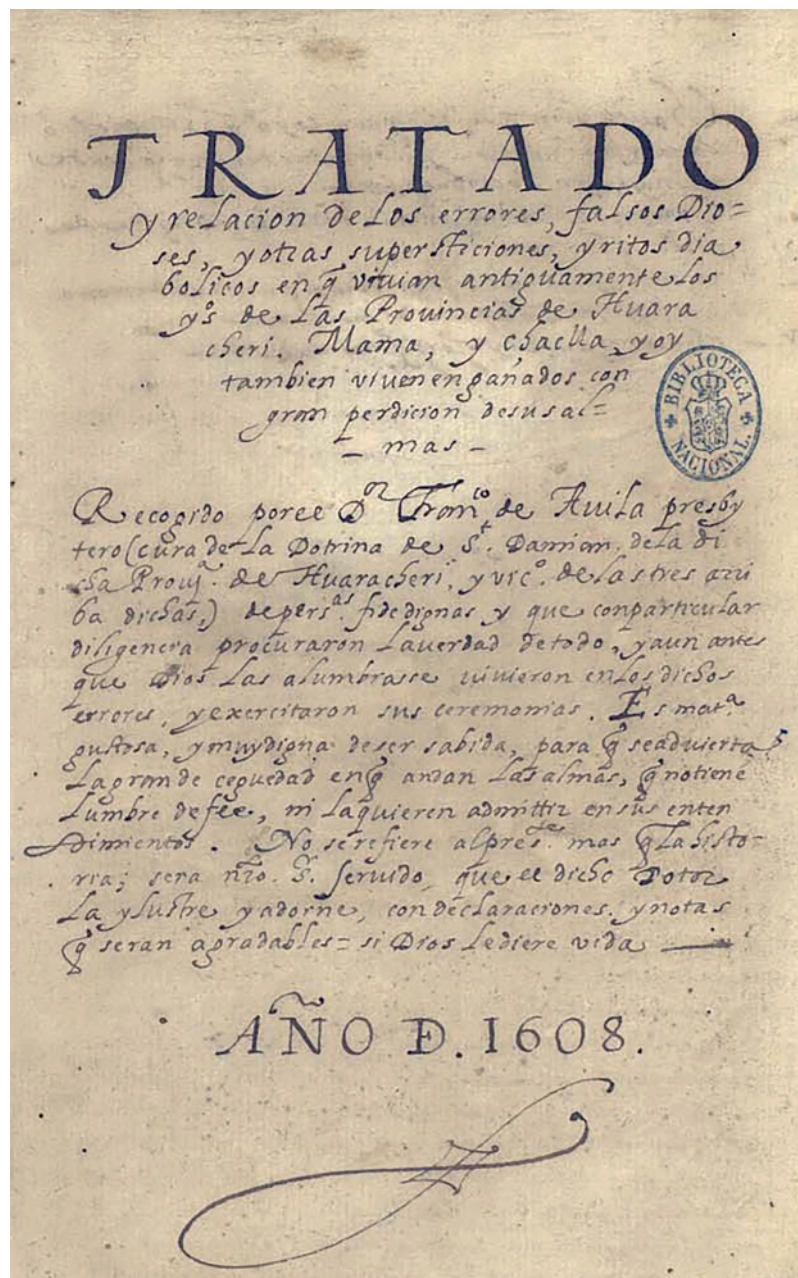 TRATADO
y relacion de los errores, falsos Dio=
ses, y otras supersticiones, y ritos dia
bolicos en q̄ viuian antiguamente los
y.º s de las Prouincias de Huara
cheri. Mama, y chaclla, y oy
tambien viuen engañados con
gran perdicion de sus al=
- mas -
BIBLIOTECA
NACIONAL.
Recogido por el D.ºʳ Franᶜᵒ de Auila presby
tero (cura de la Dotrina de S.ᵗ Damian de la di
cha Prouᵃ. de Huaracheri, y vicº. de las tres arri
ba dichas,) de persᵃˢ. fidedignas y que con particular
diligencia procuraron la uerdad de todo, y aun antes
que Dios las alumbrasse uiuieron en los dichos
errores, y exercitaron sus ceremonias. Es matᵃ.
gustosa, y muy digna de ser sabida, para q̄ se aduierta
la grande ceguedad en q̄ andan las almas, q̄ no tienē
lumbre de fee, ni la quieren admittir en sus enten
dimientos. No se refiere al presᵗᵉ. mas q̄ la histo-
ria; sera nr̄o. S.ʳ seruido, que el dicho Dotor
la ylustre y adorne, con declaraciones. y notas
q̄ seran agradables= si Dios le diere vida
AÑO D. 1608.